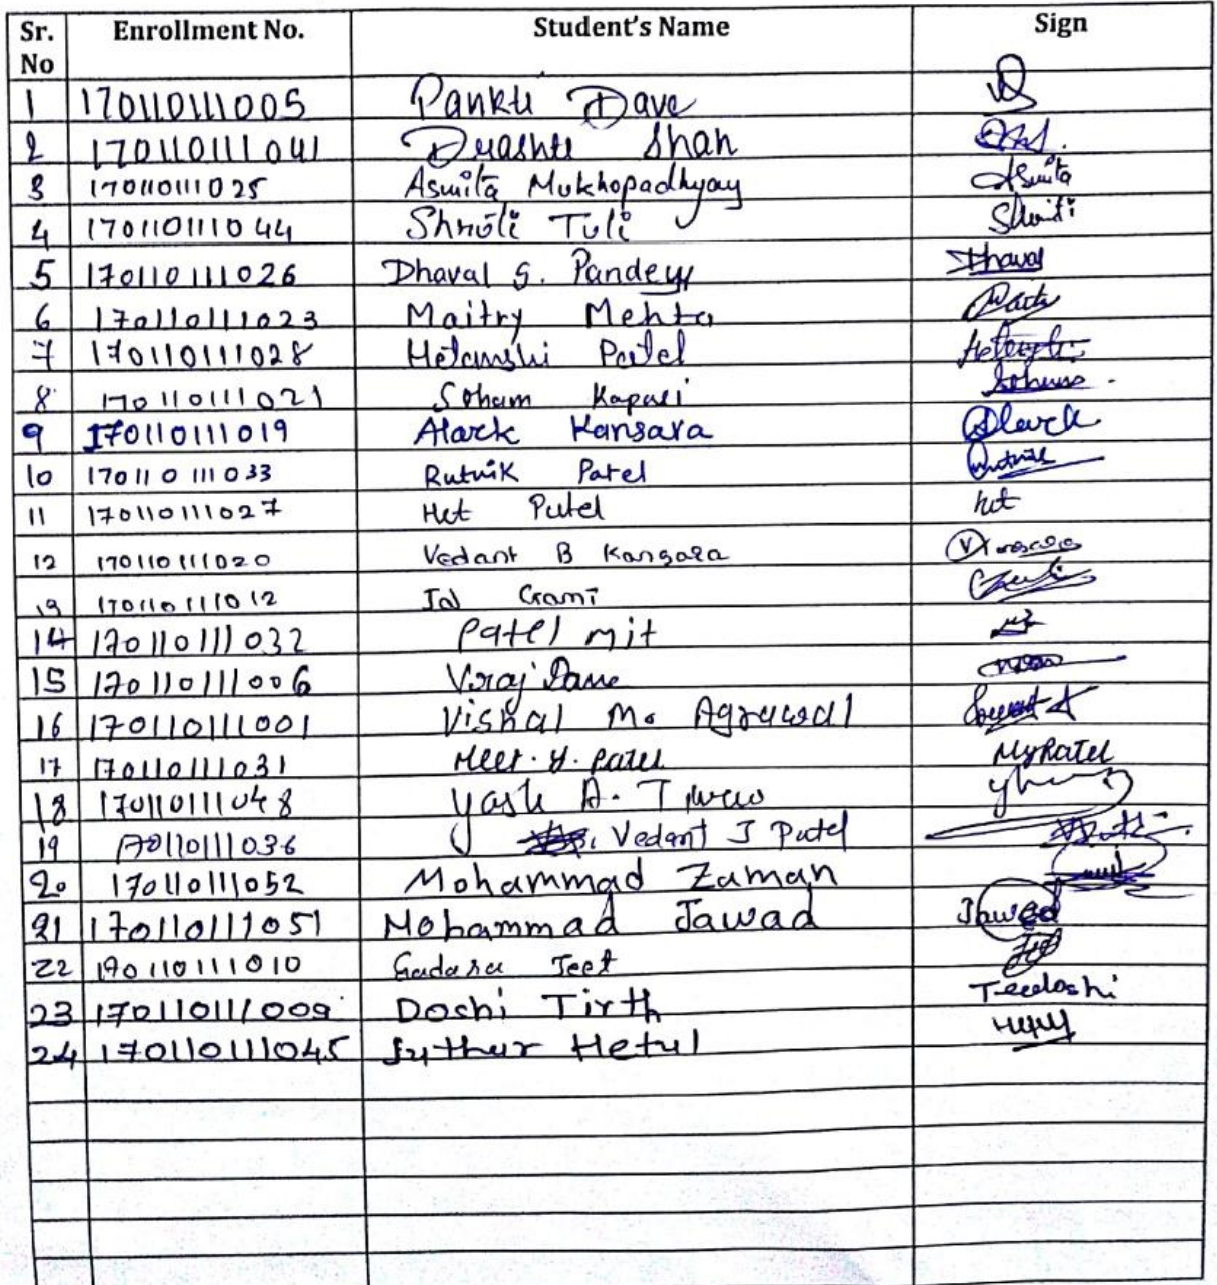 Sr. No Enrollment No. Student's Name Sign
1 170110111005 Pankti Dave
2 170110111041 Drashti Shah
3 170110111025 Asmita Mukhopadhyay Asmita
4 170110111044 Shruti Tuli Shruti
5 170110111026 Dhaval G. Pandey Dhaval
6 170110111023 Maitry Mehta
7 170110111028 Hetanshi Patel
8 170110111021 Soham Kapasi
9 170110111019 Alark Kansara Alarck
10 170110111033 Rutvik Patel
11 170110111027 Het Patel het
12 170110111020 Vedant B Kansara
13 170110111012 Gami
14 170110111032 Patel mit
15 170110111006 Viraj Dave
16 170110111001 Vishal M. Agrawal
17 170110111031 Meet. Y. Patel MyPatel
18 170110111048 Yash A.
19 170110111036 Vedant J Patel
20 170110111052 Mohammad Zaman
21 170110111051 Mohammad Jawad Jawad
22 170110111010 Gadara Jeet
23 170110111009 Doshi Tirth
24 170110111045 Suthar Hetul